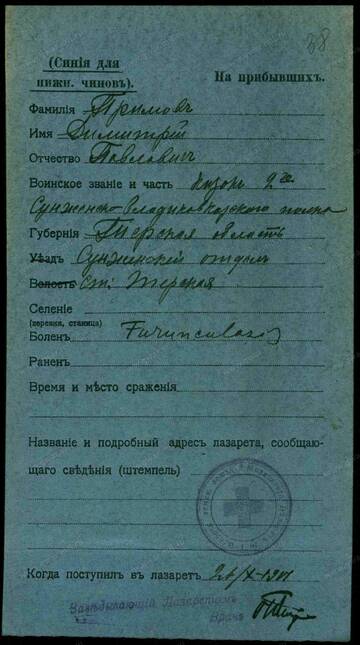 38
(Синія для
нижн. чиновъ).
На прибывшихъ.
Фамилія Примовъ
Имя Димитрій
Отчество Павловичъ
Воинское званіе и часть казакъ 2го
Сунженско-Владикавказского полка
Губернія Терская область
Уѣздъ Сунженскій отдѣлъ
Волость ст. Терская
Селеніе
(деревня, станица)
Боленъ Furunculosis
Раненъ
Время и мѣсто сраженія
Названіе и подробный адресъ лазарета, сообщаю-
щаго свѣдѣнія (штемпель)
Когда поступилъ въ лазаретъ
Завѣдывающій Лазаретомъ
Врачъ